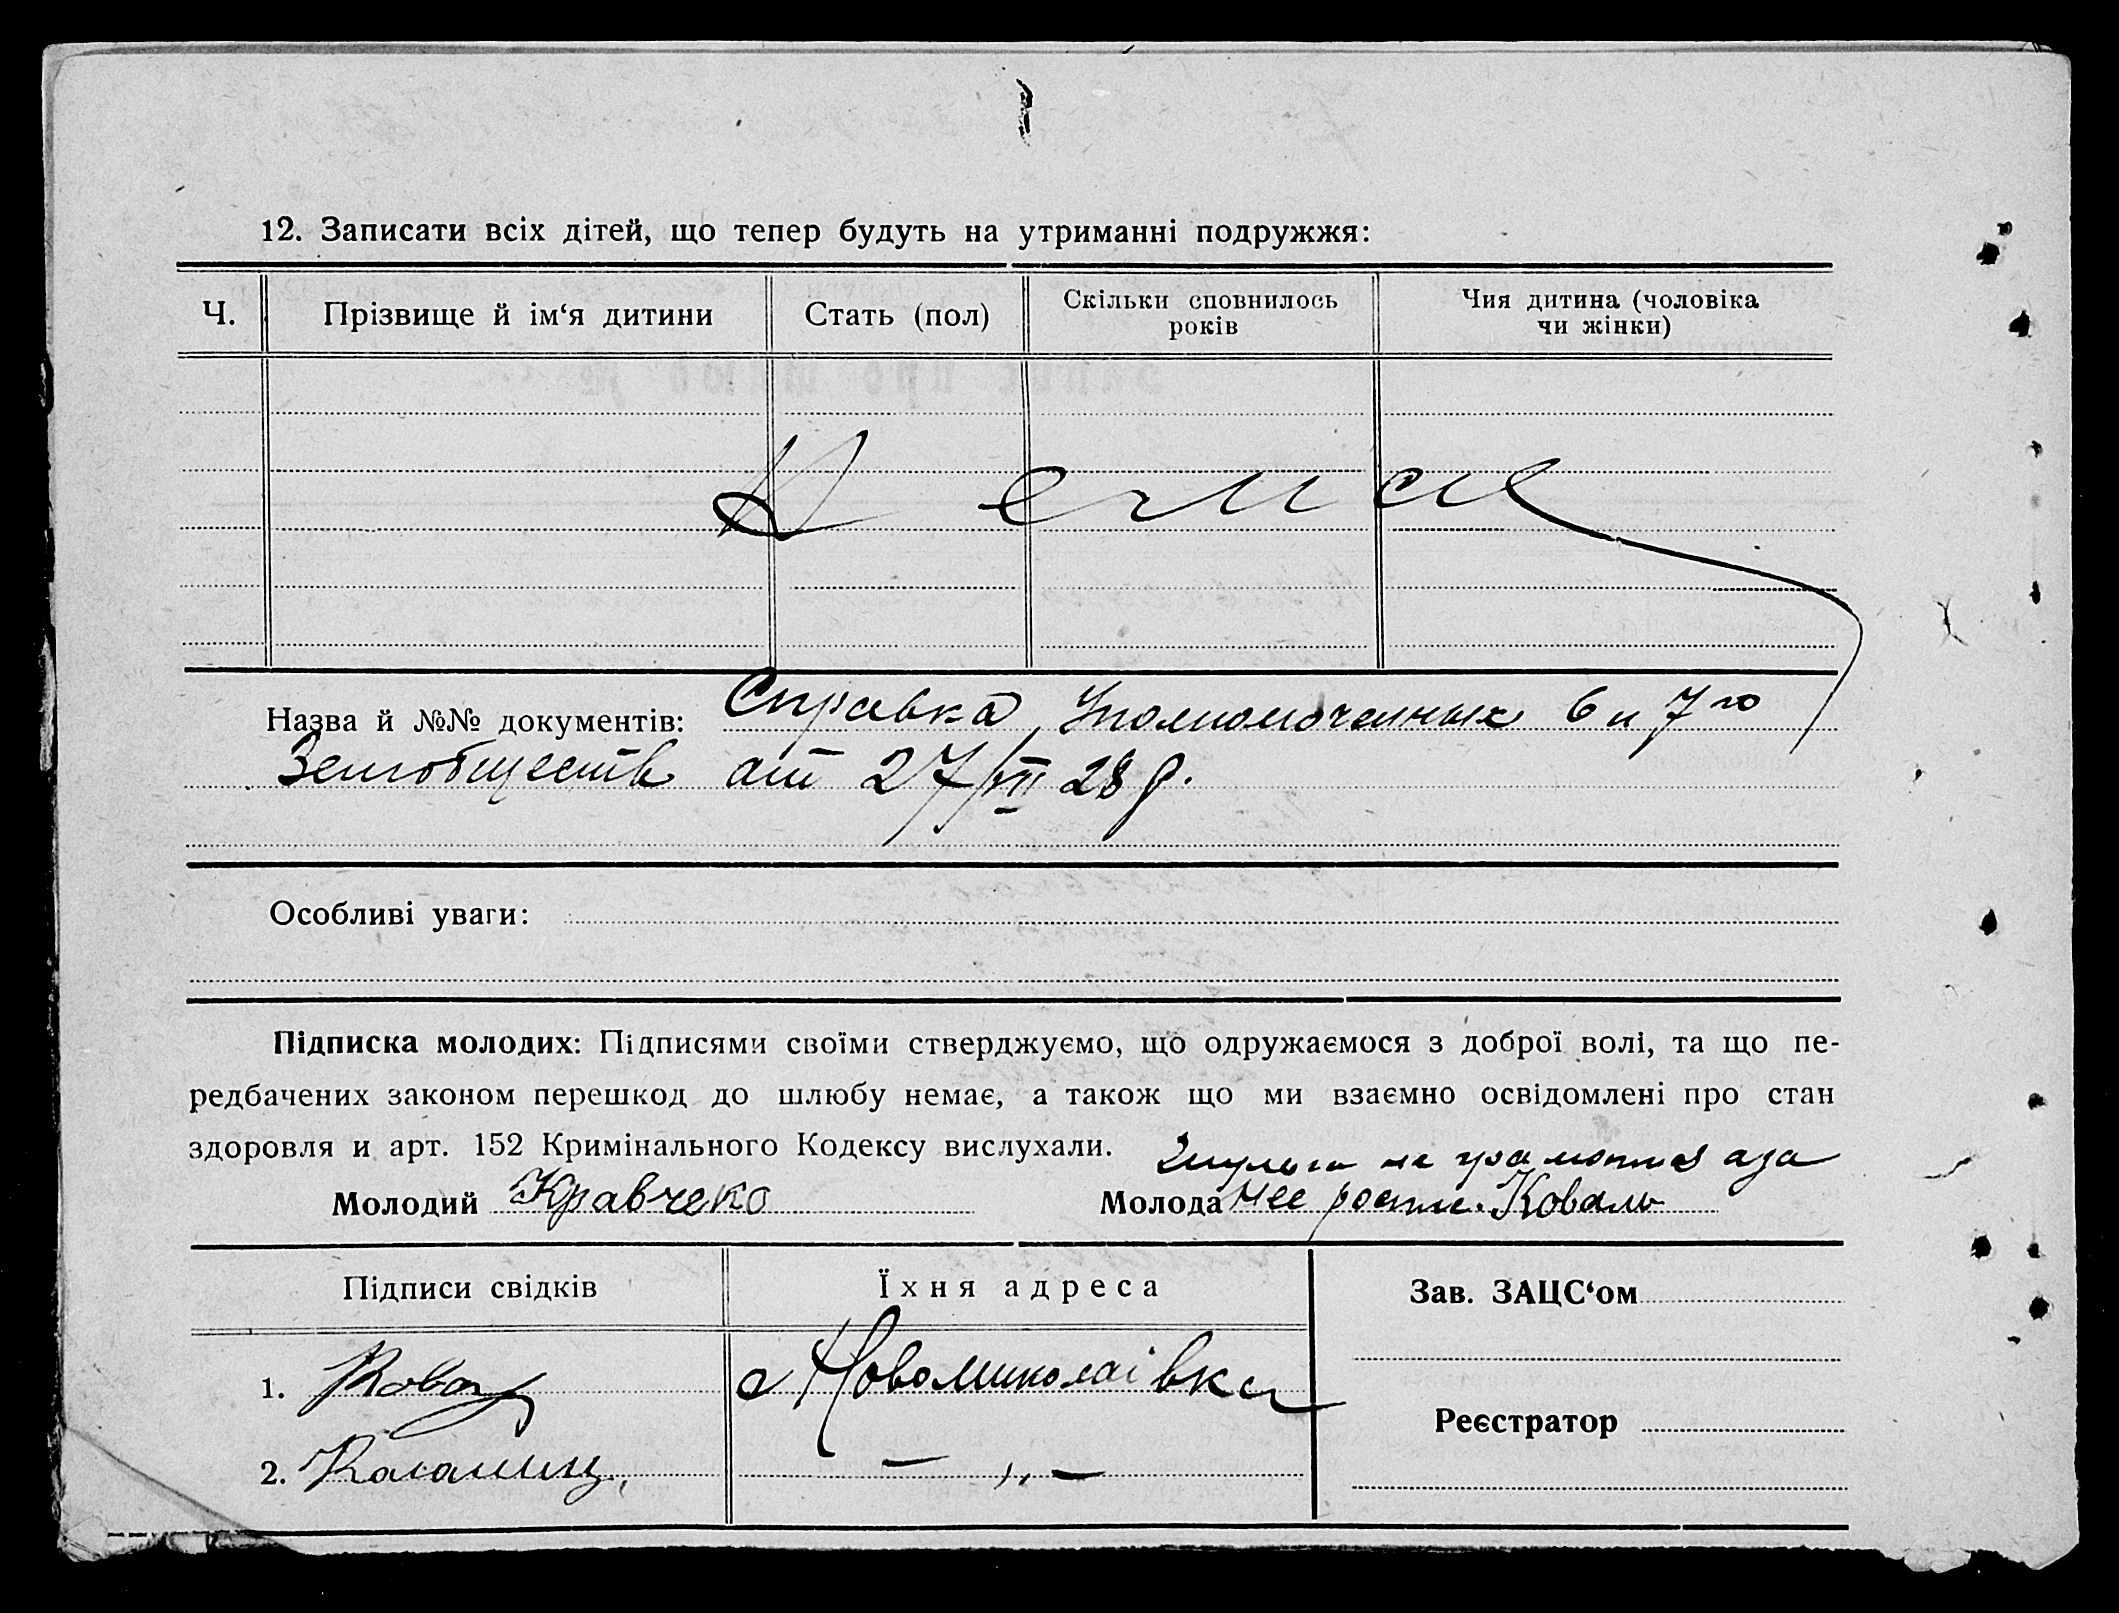 12. Записати всіх дітей, що тепер будуть на утриманні подружжя:
Ч. Прізвище й ім‘я дитини Стать (пол) Скільки сповнилось років Чия дитина (чоловіка чи жінки)
Назва й №№ документів: Справка Уполномоченных 6 и 7го
Земобществ от 27/VII 28 р.
Особливі уваги:
Підписка молодих: Підписями своїми стверджуємо, що одружаємося з доброї волі, та що пе-
редбачених законом перешкод до шлюбу немає, а також що ми взаємно освідомлені про стан
здоровля и арт. 152 Кримінального Кодексу вислухали.
аза
Молодий Кравчеко Молода нее роспис. Коваль
Підписи свідків Їхня адреса Зав. ЗАЦС‘ом
1. с Новомиколаівка
Реєстратор
2. — ,, —